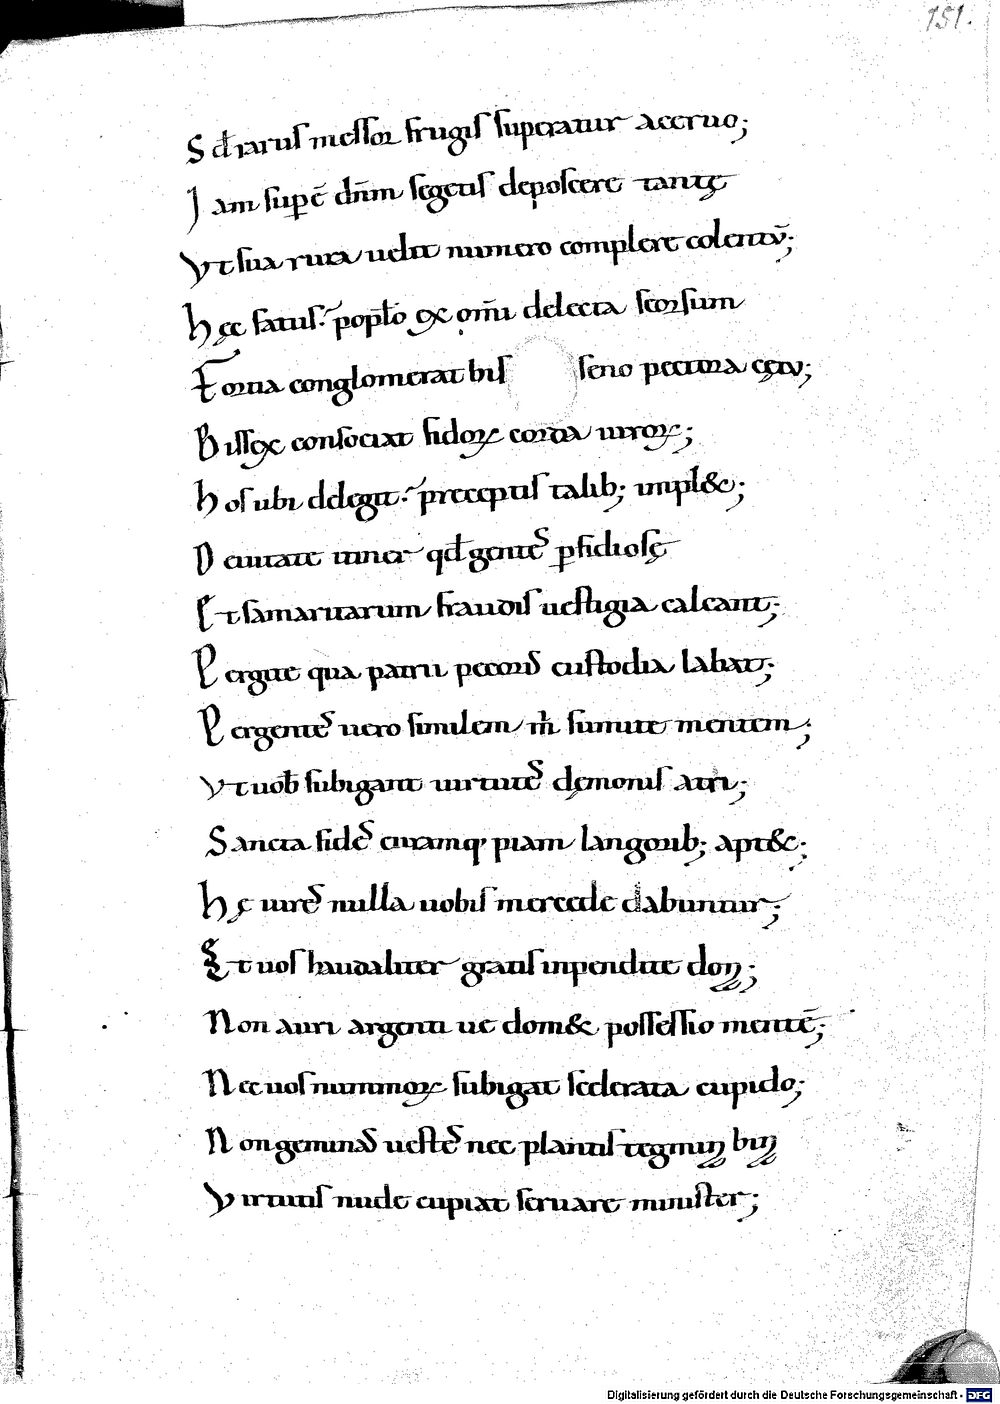 151.
S ed rarus messor frugis superatur aceruo;
J am supẽ dñm segetis deposcere tantę
Vt sua rura uelit numero complere colentũ;
h ęc fatus. poplo ex omi delecta seorsum
F ortia conglomerat bis seno pectora cętu;
B issex consociat fidoꝝ corda uiroꝝ;
h os ubi delegit. preceptis talib; implet;
D euitate iter qđ gentes ꝑfidiosę
E t samaritarum fraudis uestigia calcant;
P ergite qua patrii pecoris custodia labat;
P ergentes uero similem m̃ sumite mentem;
Vt uob subigant uirtutes dęmonis atri;
S ancta fides curamq; piam langorib; aptet;
h ę uires nulla uobis mercede dabuntur;
E t uos haud aliter gratis inpendite donũ;
N on auri argenti ue domet possessio mentẽ;
N ec uos nummoꝝ subigat scelerata cupido;
N on geminas uestes nec plantis tegmin bin
V irtutis nude cupiat seruare minister;
Digitalisierung gefördert durch die Deutsche Forschungsgemeinschaft - DFG